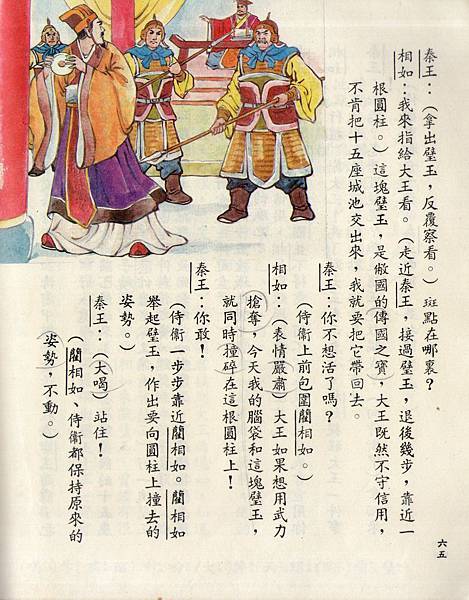 秦王：（拿出璧玉，反覆察看。）斑點在哪裏？
相如：我來指給大王看。（走近秦王，接過璧玉，退後幾步，靠近一
根圓柱。）這塊璧玉，是敝國的傳國之寶，大王既然不守信用，
不肯把十五座城池交出來，我就要把它帶回去。
秦王：你不想活了嗎？
（侍衞上前包圍藺相如。）
相如：（表情嚴肅）大王如果想用武力
搶奪，今天我的腦袋和這塊璧玉，
就同時撞碎在這根圓柱上！
秦王：你敢！
（侍衞一步步靠近藺相如。藺相如
舉起璧玉，作出要向圓柱上撞去的
姿勢。）
秦王：（大喝）站住！
（藺相如、侍衞都保持原來的
姿勢，不動。）
六五